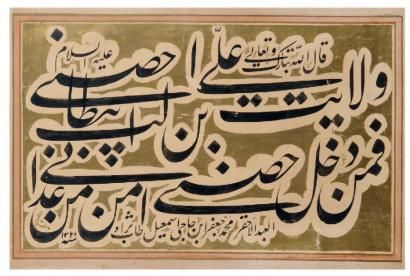 قال الله تبارک و تعالی
ولایت علی بن ابیطالب علیه السلام حصنی
فمن دخل حصنی امن من عذابی
العبد الاحقر محمد جعفر ابن حاجی اسمعیل طاب ثراه
سنه